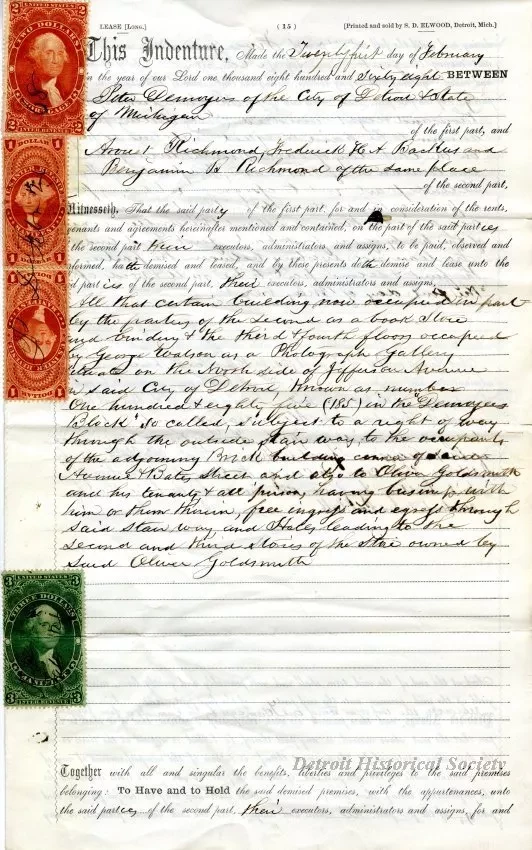 LEASE [LONG.] ( 15 ) [Printed and sold by S. D. ELWOOD, Detroit, Mich.]
This Indenture, Made the Twenty first day of February
in the year of our Lord one thousand eight hundred and Sixty eight BETWEEN
Peter Desnoyers of the City of Detroit & State
of Michigan
of the first part, and
Richmond, Frederick H A Backus and
Benjamin B Richmond of the same place
of the second part,
Witnesseth, That the said party of the first part, for and in consideration of the rents,
venants and agreements hereinafter mentioned and contained, on the part of the said parties
the second their executors, administrators and assigns, to be paid, observed and
formed, hath demised and leased, and by these presents doth demise and lease unto the
id parties of the second part, their executors, administrators and assigns,
All that certain building now occupied in part
by the parties of the second as a book Store
and bindery & the third & fourth floors occupied
by George Watson as a Photograph Gallery
situate on the North side of Jefferson Avenue
in said City of Detroit, known as number
One hundred & eighty five (185) in the "Desnoyers
Block" so called, subject to a right of way
through the outside stair way, to the occupants
of the adjoining Brick building corner of said
Avenue & Bates Street and also to Oliver Goldsmith
and his tenants & all persons having business with
him or them therein, free ingress and egress through
said stair way and Halls leading to the
second and third stories of the Store owned by
said Oliver Goldsmith
Together with all and singular the benefits, liberties and privileges to the said premises
belonging: To Have and to Hold the said demised premises, with the appurtenances, unto
the said parties of the second part, their executors, administrators and assigns, for and
Detroit Historical Society
UNITED STATES
TWO DOLLARS
2 2
1 DOLLAR 1
1 DOLLAR 1
UNITED STATES
THREE DOLLARS
3 3